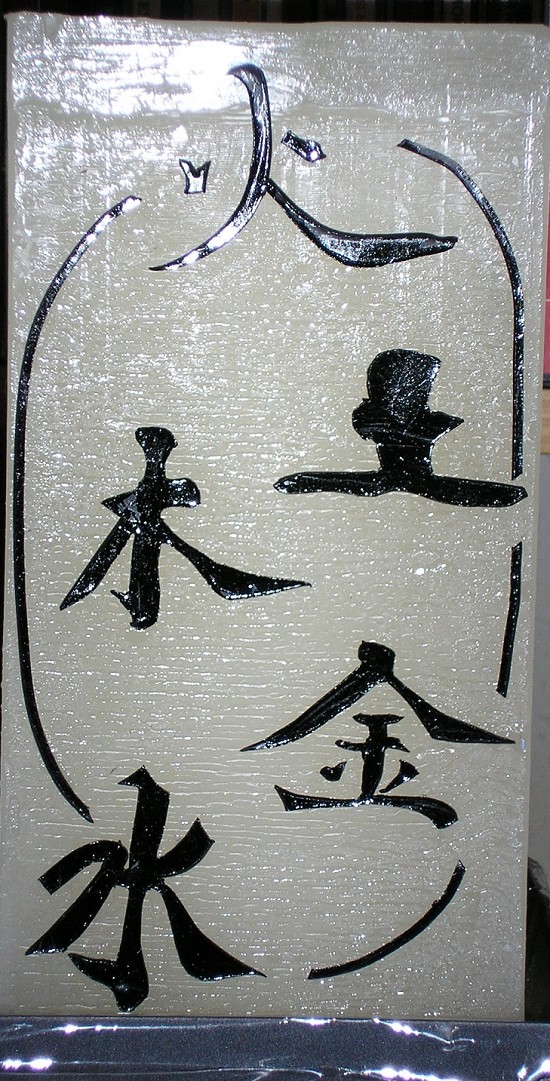 火
土
木
金
水